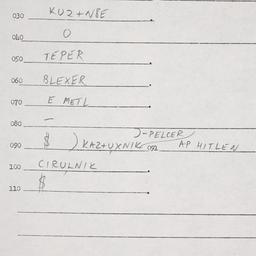 030 KUZ+NBE
040 O
050 TEPER
060 BLEXER
070 E METL
080 –
)-PELCER
090 $ ) KAZ+UXNIK 092 AP HITLEN
100 CIRULNIK
110 $